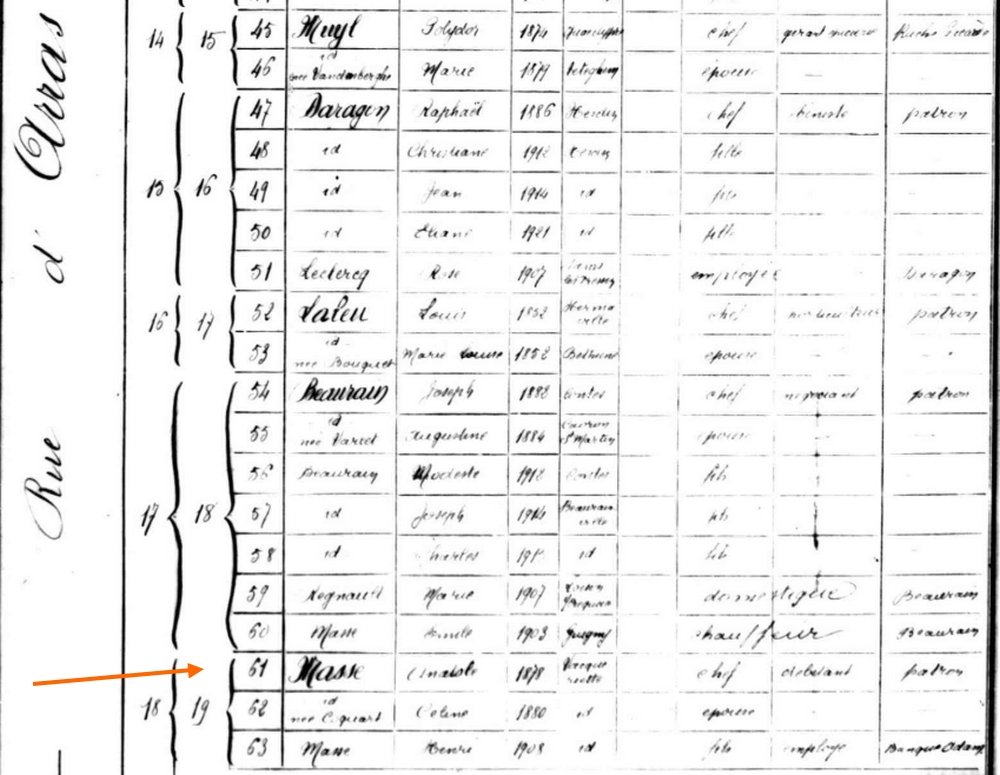 Rue d' Arras
14 15 45 Muyl Polydor 1874 chef gérant Ruche
46 id née Vandenberghe Marie 1879 épouse —
15 16 47 Daragon Raphaël 1886 Hesdin chef patron
48 id Christiane 1912 fille
49 id Jean 1914 id fils
50 id 1921 id fille
51 Leclercq Rose 1907 employée Daragon
16 17 52 Louis 1852 chef patron
53 id née Bouquet Marie Louise 1852 Bethune épouse —
17 18 54 Beaurain Joseph 1882 Contes chef négociant patron
55 id née Varlet Augustine 1884 Cavron St Martin épouse —
56 Beaurain Modeste 1912 Contes fils
57 id Joseph 1914 Beaurainville fils
58 id Charles id fils
59 Regnault Marie 1907 domestique Beaurain
60 Masse 1903 Guigny chauffeur Beaurain
61 Masse Anatole 1878 chef débitant patron
18 19 62 id née Céline 1880 id épouse —
63 Masse Henri 1908 id fils employé Banque Adam